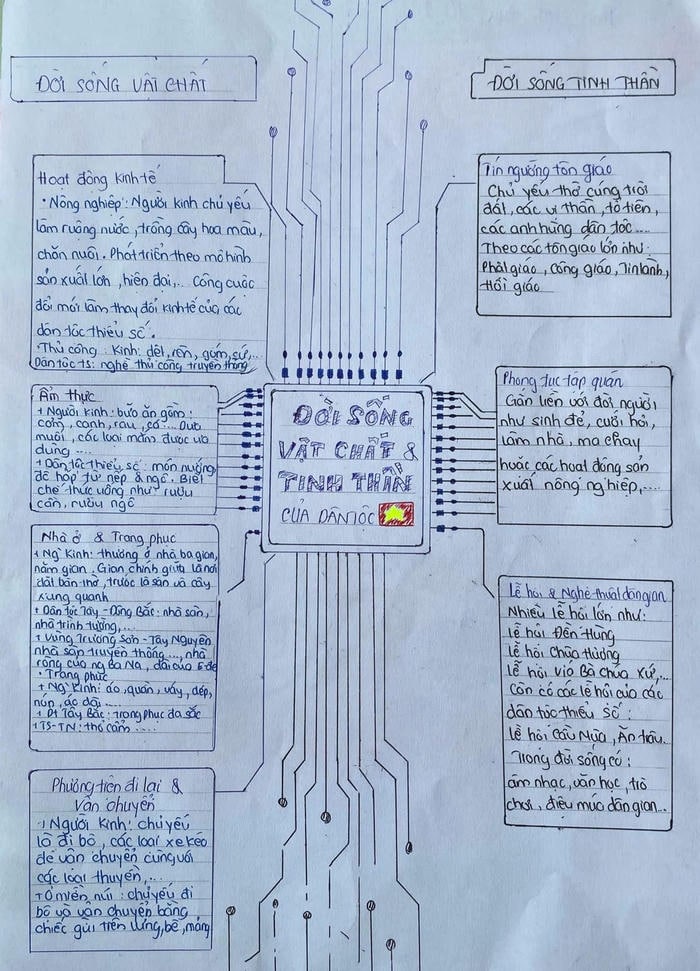 ĐỜI SỐNG VẬT CHẤT
Hoạt động kinh tế
• Nông nghiệp: Người kinh chủ yếu
làm ruộng nước, trồng cây hoa màu,
chăn nuôi. Phát triển theo mô hình
sản xuất lớn, hiện đại,... Công cuộc
đổi mới làm thay đổi kinh tế của các
dân tộc thiểu số.
• Thủ công: Kinh: dệt, rèn, gốm, sứ,...
Dân tộc TS: nghề thủ công truyền thống
Ẩm thực
+ Người kinh: bữa ăn gồm:
cơm, canh, rau, cá .... Dưa
muối, các loại mắm được ưa
dùng ....
+ Dân tộc thiểu số: món nướng,
đồ hấp từ nếp & ngô. Biết
chế thức uống như rượu
cần, rượu ngô
Nhà ở & Trang phục
+ Ng' Kinh: thường ở nhà ba gian,
năm gian. Gian chính giữa là nơi
đặt bàn thờ, trước là sân và cây
xung quanh
+ Dân tộc Tây - Đông Bắc: nhà sàn,
nhà trình tường,...
+ Vùng Trường Sơn - Tây Nguyên
nhà sàn truyền thống ..., nhà
rông của ng Ba Na, dài của Ê-đê
• Trang phục
+ Ng' Kinh: áo, quần, váy, dép,
nón, áo dài ....
+ Dt Tây Bắc: trang phục đa sắc
+ TS-TN: thổ cẩm ....
Phương tiện đi lại &
Vận chuyển
+ Người Kinh: chủ yếu
là đi bộ, các loại xe kéo
để vận chuyển cùng với
các loại thuyền,...
+ Ở miền núi: chủ yếu đi
bộ và vận chuyển bằng
chiếc gùi trên lưng, bè, mảng
ĐỜI SỐNG
VẬT CHẤT &
TINH THẦN
CỦA DÂN TỘC
ĐỜI SỐNG TINH THẦN
Tín ngưỡng tôn giáo
Chủ yếu thờ cúng trời
đất, các vị thần, tổ tiên,
các anh hùng dân tộc ....
Theo các tôn giáo lớn như:
Phật giáo, Công giáo, Tin lành,
Hồi giáo
Phong tục tập quán
Gắn liền với đời người
như sinh đẻ, cưới hỏi,
làm nhà, ma chay
hoặc các hoạt động sản
xuất nông nghiệp,....
Lễ hội & Nghệ thuật dân gian
Nhiều lễ hội lớn như:
lễ hội Đền Hùng
lễ hội Chùa Hương
lễ hội Vía Bà Chúa Xứ,...
Còn có các lễ hội của các
dân tộc thiểu số:
lễ hội Cầu Mưa, Ăn trâu.
Trong đời sống có:
âm nhạc, văn học, trò
chơi, điệu múa dân gian...